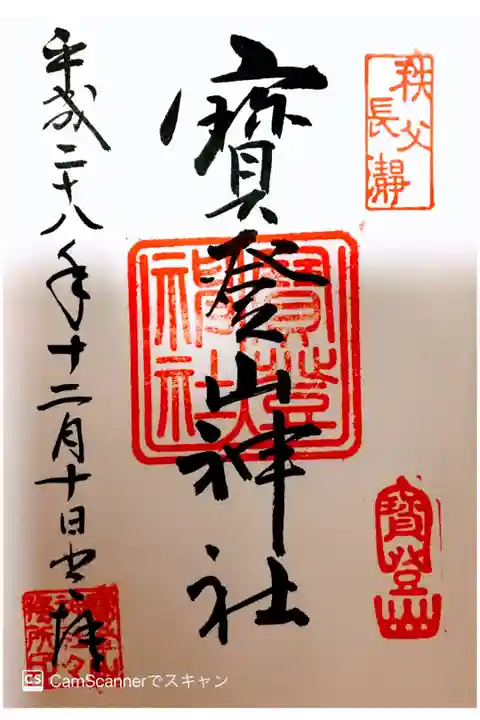 秩父
長瀞
寳登山神社
寳登山
平成二十八年十二月十日参拝
CS CamScannerでスキャン